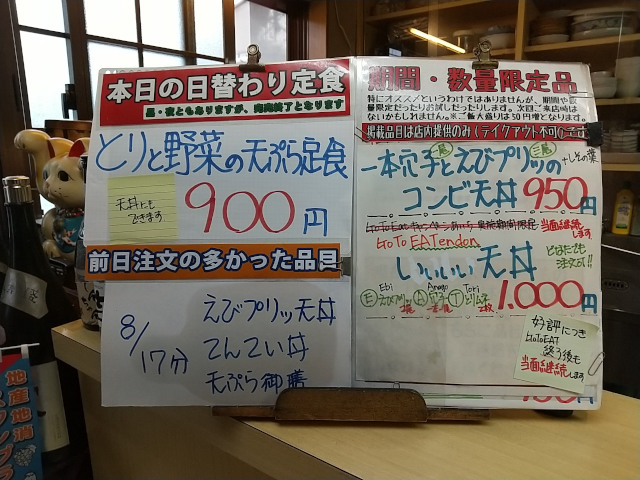 本日の日替わり定食
昼・夜ともありますが、完売終了となります
とりと野菜の天ぷら定食
天丼にも
できます
900円
前日注文の多かった品目
8/17分
えびプリッ天丼
てんてい丼
天ぷら御膳
期間・数量限定品
特にオススメというわけではありませんが、期間や数
量限定だったりお試しだったりします。次回ご来店時は
ないかもしれません。※ご飯大盛りは50円増となります。
掲載品目は店内提供のみ(テイクアウト不可)です
一本穴子とえびプリッの
+しその葉
コンビ天丼 950円
当面継続
します
GoTo EATendon
どなたでも
注文可!!
いいいい天丼
Ebi Anago Tori
Ⓔえびプリッ Ⓐ穴子 Ⓣとりムネ
1,000円
好評につき
GoToEAT
終了後も
当面継続します
地産地消